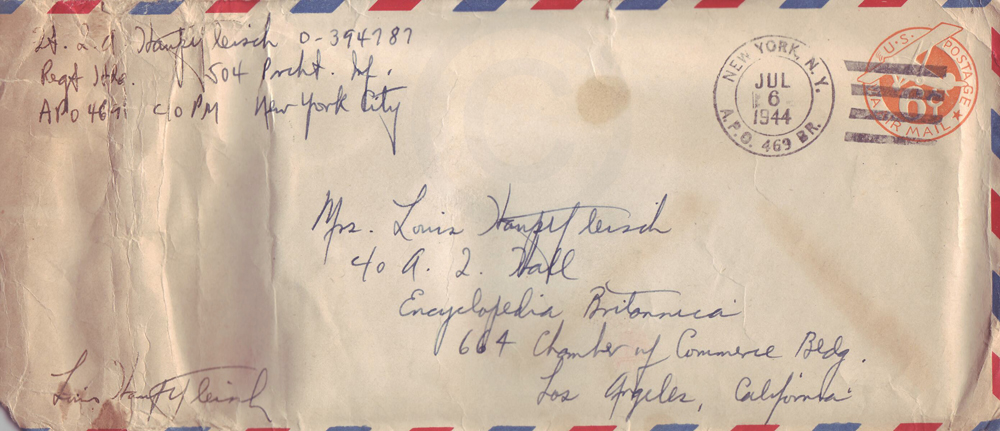 Lt. L. A. Hauptfleisch O-394787
Regt Hdq. 504 Prcht. Inf.
APO 469 c/o PM New York City
NEW YORK, N.Y.
JUL
6
1944
A.P.O. 469 BR.
U.S. POSTAGE
6¢
AIR MAIL
Mrs. Louis Hauptfleisch
c/o A. L. Hall
Encyclopedia Britannica
664 Chamber of Commerce Bldg.
Los Angeles, California
Louis Hauptfleisch